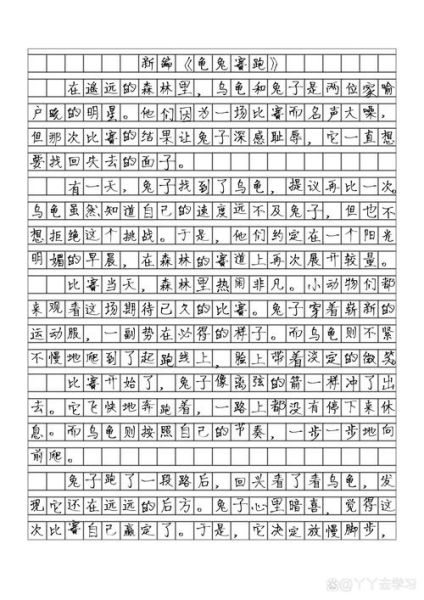 新编《龟兔赛跑》
在遥远的森林里，乌龟和兔子是两位家喻
户晓的明星。他们因为一场比赛而名声大噪，
但那次比赛的结果让兔子深感耻辱，它一直想
要找回失去的面子。
有一天，兔子找到了乌龟，提议再比一次。
乌龟虽然知道自己的速度远不及兔子，但也不
想拒绝这个挑战。于是，他们约定在一个阳光
明媚的早晨，在森林的赛道上再次展开较量。
比赛当天，森林里热闹非凡。小动物们都
来观看这场期待已久的比赛。兔子穿着崭新的
运动服，一副势在必得的样子。而乌龟则不紧
不慢地爬到了起跑线上，脸上带着淡定的微笑
比赛开始了，兔子像离弦的箭一样冲了出
去。它飞快地奔跑着，一路上都没有停下来休
息。而乌龟则按照自己的节奏，一步一步地向
前爬。
兔子跑了一段路后，回头看了看乌龟，发
现它还在远远的后方。兔子心里暗喜，觉得这
次比赛自己赢定了。于是，它决定放慢脚步，
@丫丫去学习